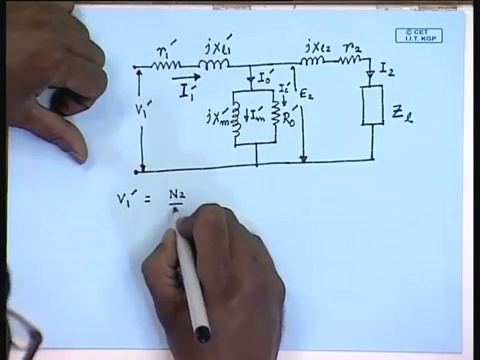 © CET
I.I.T. KGP
r₁′ jxl₁′ jxl₂ r₂
I₁′ I₀′ I₂
V₁′ jxm′ Im′ Ii′ R₀′ E₂ Zl
V₁′ = N₂